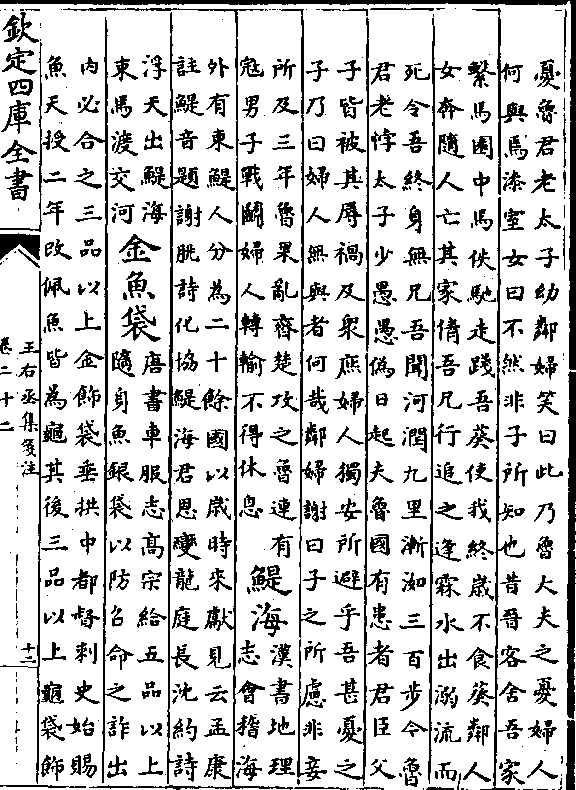 憂魯君老太子幼鄰婦笑曰此乃魯大夫之憂婦人
何與焉漆室女曰不然非子所知也昔晉客舍吾家
繫馬園中馬佚馳走踐吾葵使我終歳不食葵鄰人
女奔隨人亡其家倩吾兄行追之逢霖水出溺流而
死令吾終身無兄吾聞河潤九里漸洳三百步今魯
君老悖太子少愚愚偽日起夫魯國有患者君臣父
子皆被其辱禍及衆庶婦人獨安所避乎吾甚憂之
子乃曰婦人無與者何哉鄰婦謝曰子之所慮非妾
所及三年魯果亂齊楚攻之魯連有
冦男子戰鬭婦人轉輸不得休息
鯷海
漢書地理
志會稽海
外有東鯷人分為二十餘國以歳時來獻見云孟康
註鯷音題謝朓詩化協鯷海君恩變龍庭長沈約詩
浮天出鯷海
束馬渡交河
金魚袋
唐書車服志髙宗給五品以上
隨身魚銀袋以防召命之詐出
内必合之三品以上金飾袋垂拱中都督刺史始賜
魚天授二年改佩魚皆為龜其後三品以上龜袋飾
欽定四庫全書
王右丞集箋注
卷二十二
十二